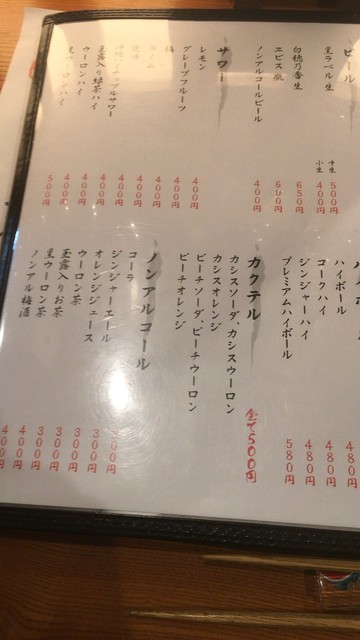 ビール
黒ラベル生 中生 500円
小生 400円
白穂乃香生 650円
エビス瓶 600円
ノンアルコールビール 400円
サワー
レモン 400円
グレープフルーツ 400円
梅 400円
ライム 400円
沖縄パイナップルサワー 400円
玉露入り緑茶ハイ 400円
ウーロンハイ 400円
黒ウーロンハイ 500円
ハイボール 480円
コークハイ 480円
ジンジャーハイ 480円
プレミアムハイボール 580円
カクテル 全て500円
カシスソーダ、カシスウーロン
カシスオレンジ
ピーチソーダ、ピーチウーロン
ピーチオレンジ
ノンアルコール
コーラ 300円
ジンジャーエール 300円
オレンジジュース 300円
ウーロン茶 300円
玉露入りお茶 300円
黒ウーロン茶 400円
ノンアル梅酒 400円